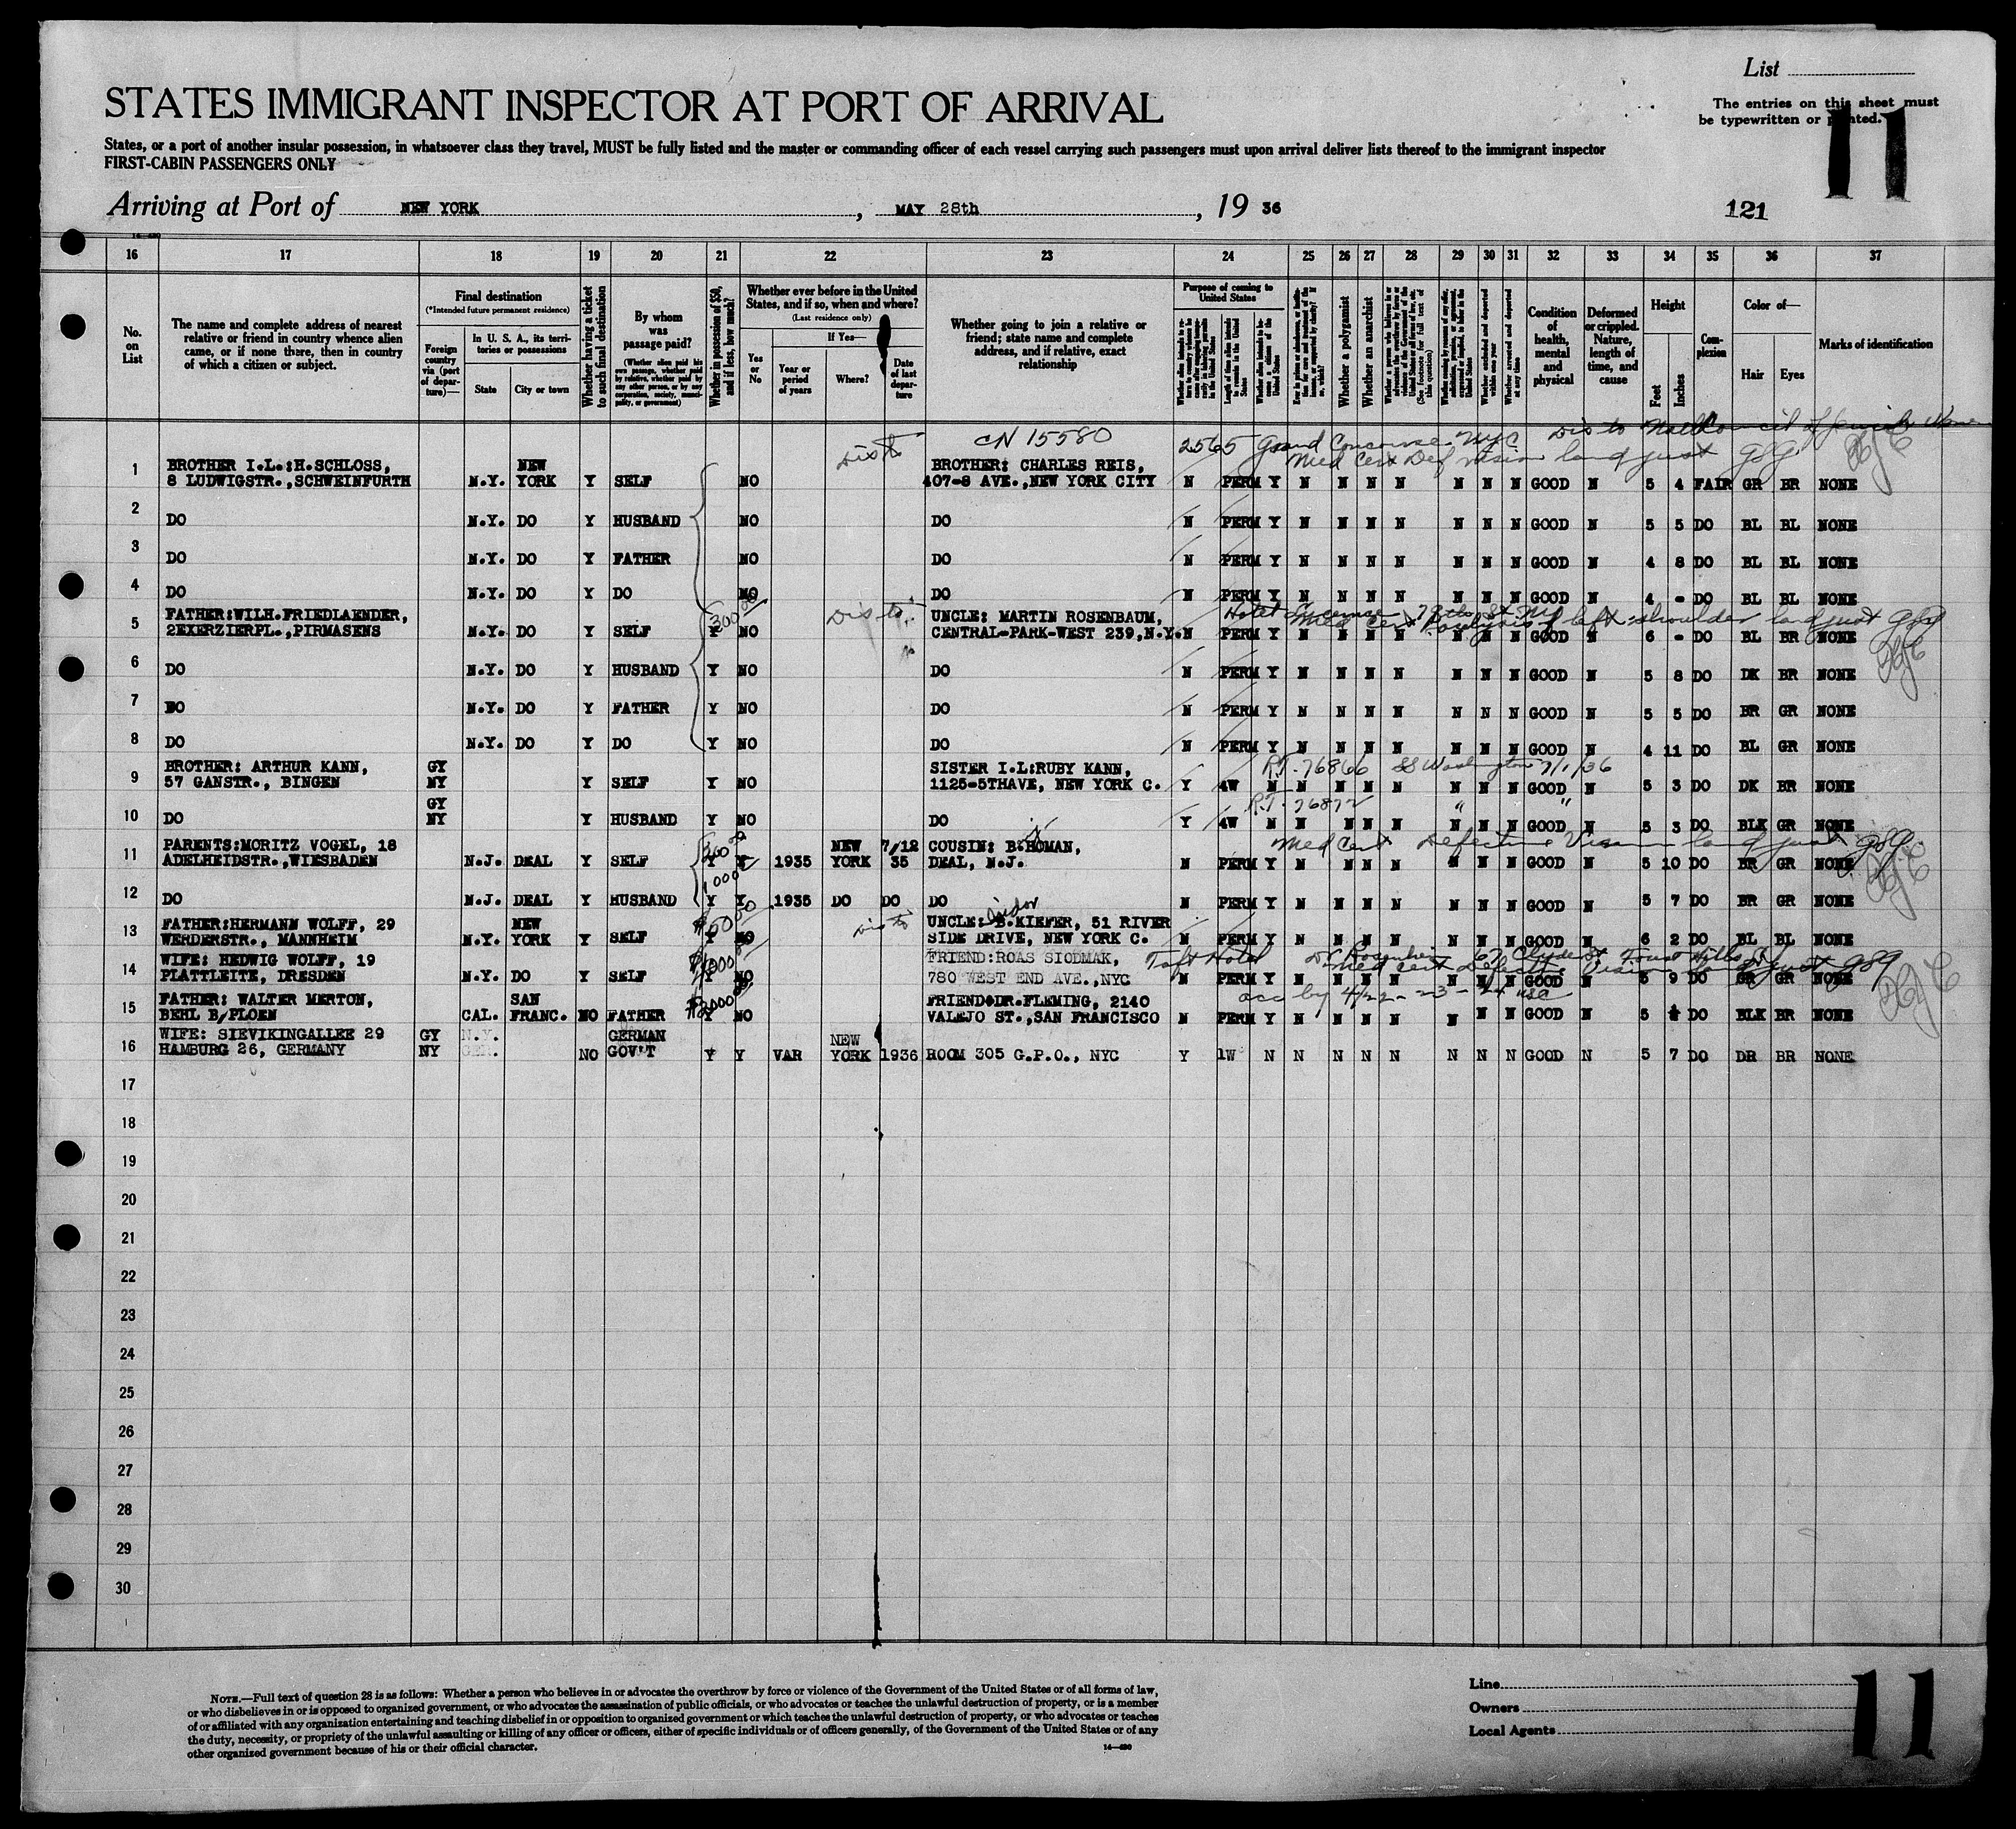 List
STATES IMMIGRANT INSPECTOR AT PORT OF ARRIVAL
The entries on this sheet must
be typewritten or printed.
11
States, or a port of another insular possession, in whatsoever class they travel, MUST be fully listed and the master or commanding officer of each vessel carrying such passengers must upon arrival deliver lists thereof to the immigrant inspector
FIRST-CABIN PASSENGERS ONLY
Arriving at Port of NEW YORK, MAY 28th, 19 36
121
16 17 18 19 20 21 22 23 24 25 26 27 28 29 30 31 32 33 34 35 36 37
No. on List
The name and complete address of nearest
relative or friend in country whence alien
came, or if none there, then in country
of which a citizen or subject.
Final destination
(*Intended future permanent residence)
Foreign country via (port of departure)—
In U. S. A., its territories or possessions
State
City or town
Whether having a ticket to such final destination
By whom was passage paid?
(Whether alien paid his own passage, whether paid by relative, whether paid by any other person, or by any corporation, society, municipality, or government)
Whether in possession of $50, and if less, how much?
Whether ever before in the United States, and if so, when and where?
(Last residence only)
Yes or No
If Yes—
Year or period of years
Where?
Date of last departure
Whether going to join a relative or
friend; state name and complete
address, and if relative, exact
relationship
Purpose of coming to United States
Whether a polygamist
Whether an anarchist
Condition of health, mental and physical
Deformed or crippled. Nature, length of time, and cause
Height
Feet
Inches
Complexion
Color of—
Hair
Eyes
Marks of identification
CN 15580
2565 Grand Concourse NYC
Dis to Natl Council of Jewish Women
Med Cert Def vision land just
1 BROTHER I.L.:H.SCHLOSS, NEW BROTHER: CHARLES REIS,
8 LUDWIGSTR.,SCHWEINFURTH N.Y. YORK Y SELF NO 407-8 AVE.,NEW YORK CITY N PERM Y N N N N N N N GOOD N 5 4 FAIR GR BR NONE
2 DO N.Y. DO Y HUSBAND NO DO N PERM Y N N N N N N N GOOD N 5 5 DO BL BL NONE
3 DO N.Y. DO Y FATHER NO DO N PERM Y N N N N N N N GOOD N 4 8 DO BL BL NONE
4 DO N.Y. DO Y DO NO DO N PERM Y N N N N N N N GOOD N 4 - DO BL BL NONE
Med Cert Paralysis of left shoulder land just
5 FATHER:WILH.FRIEDLAENDER, UNCLE: MARTIN ROSENBAUM,
2EXERZIERPL.,PIRMASENS N.Y. DO Y SELF Y NO CENTRAL-PARK-WEST 239,N.Y. N PERM Y N N N N N N N GOOD N 6 - DO BL BR NONE
6 DO N.Y. DO Y HUSBAND Y NO DO N PERM Y N N N N N N N GOOD N 5 8 DO DK BR NONE
7 DO N.Y. DO Y FATHER Y NO DO N PERM Y N N N N N N N GOOD N 5 5 DO BR GR NONE
8 DO N.Y. DO Y DO Y NO DO N PERM Y N N N N N N N GOOD N 4 11 DO BL GR NONE
R.T. 76866 SS Washington 7/1/36
9 BROTHER: ARTHUR KANN, GY SISTER I.L:RUBY KANN,
57 GANSTR., BINGEN NY Y SELF Y NO 1125-5THAVE, NEW YORK C. Y 4W N N N N N N N N GOOD N 5 3 DO DK BR NONE
R.T. 76872 " "
10 GY
DO NY Y HUSBAND Y NO DO Y 4W N N N N N N N N GOOD N 5 3 DO BLK GR NONE
Med Cert Defective Vision land just
11 PARENTS:MORITZ VOGEL, 18 NEW 7/12 COUSIN: B.HOMAN,
ADELHEIDSTR.,WIESBADEN N.J. DEAL Y SELF Y Y 1935 YORK 35 DEAL, N.J. N PERM Y N N N N N N N GOOD N 5 10 DO BR GR NONE
12 DO N.J. DEAL Y HUSBAND Y Y 1935 DO DO DO N PERM Y N N N N N N N GOOD N 5 7 DO BR GR NONE
13 FATHER:HERMANN WOLFF, 29 NEW UNCLE: B.KIEFER, 51 RIVER
WERDERSTR., MANNHEIM N.Y. YORK Y SELF Y NO SIDE DRIVE, NEW YORK C. N PERM Y N N N N N N N GOOD N 6 2 DO BL BL NONE
Taft Hotel
Med cert Defective Vision land just
14 WIFE: HEDWIG WOLFF, 19 FRIEND:ROAS SIODMAK,
PLATTLEITE, DRESDEN N.Y. DO Y SELF Y NO 780 WEST END AVE.,NYC N PERM Y N N N N N N N GOOD N 5 9 DO GR GR NONE
15 FATHER: WALTER MERTON, SAN FRIEND:DR.FLEMING, 2140
BEHL B/PLOEN CAL. FRANC. NO FATHER Y NO VALEJO ST.,SAN FRANCISCO N PERM Y N N N N N N N GOOD N 5 DO BLK BR NONE
16 WIFE: SIEVIKINGALLEE 29 GY N.Y. GERMAN NEW
HAMBURG 26, GERMANY NY GER. NO GOV'T Y Y VAR YORK 1936 ROOM 305 G.P.O., NYC Y 1W N N N N N N N N GOOD N 5 7 DO DR BR NONE
17
18
19
20
21
22
23
24
25
26
27
28
29
30
NOTE.—Full text of question 28 is as follows: Whether a person who believes in or advocates the overthrow by force or violence of the Government of the United States or of all forms of law,
or who disbelieves in or is opposed to organized government, or who advocates the assassination of public officials, or who advocates or teaches the unlawful destruction of property, or is a member
of or affiliated with any organization entertaining and teaching disbelief in or opposition to organized government or which teaches the unlawful destruction of property, or who advocates or teaches
the duty, necessity, or propriety of the unlawful assaulting or killing of any officer or officers, either of specific individuals or of officers generally, of the Government of the United States or of any
other organized government because of his or their official character.
Line
Owners
Local Agents
11